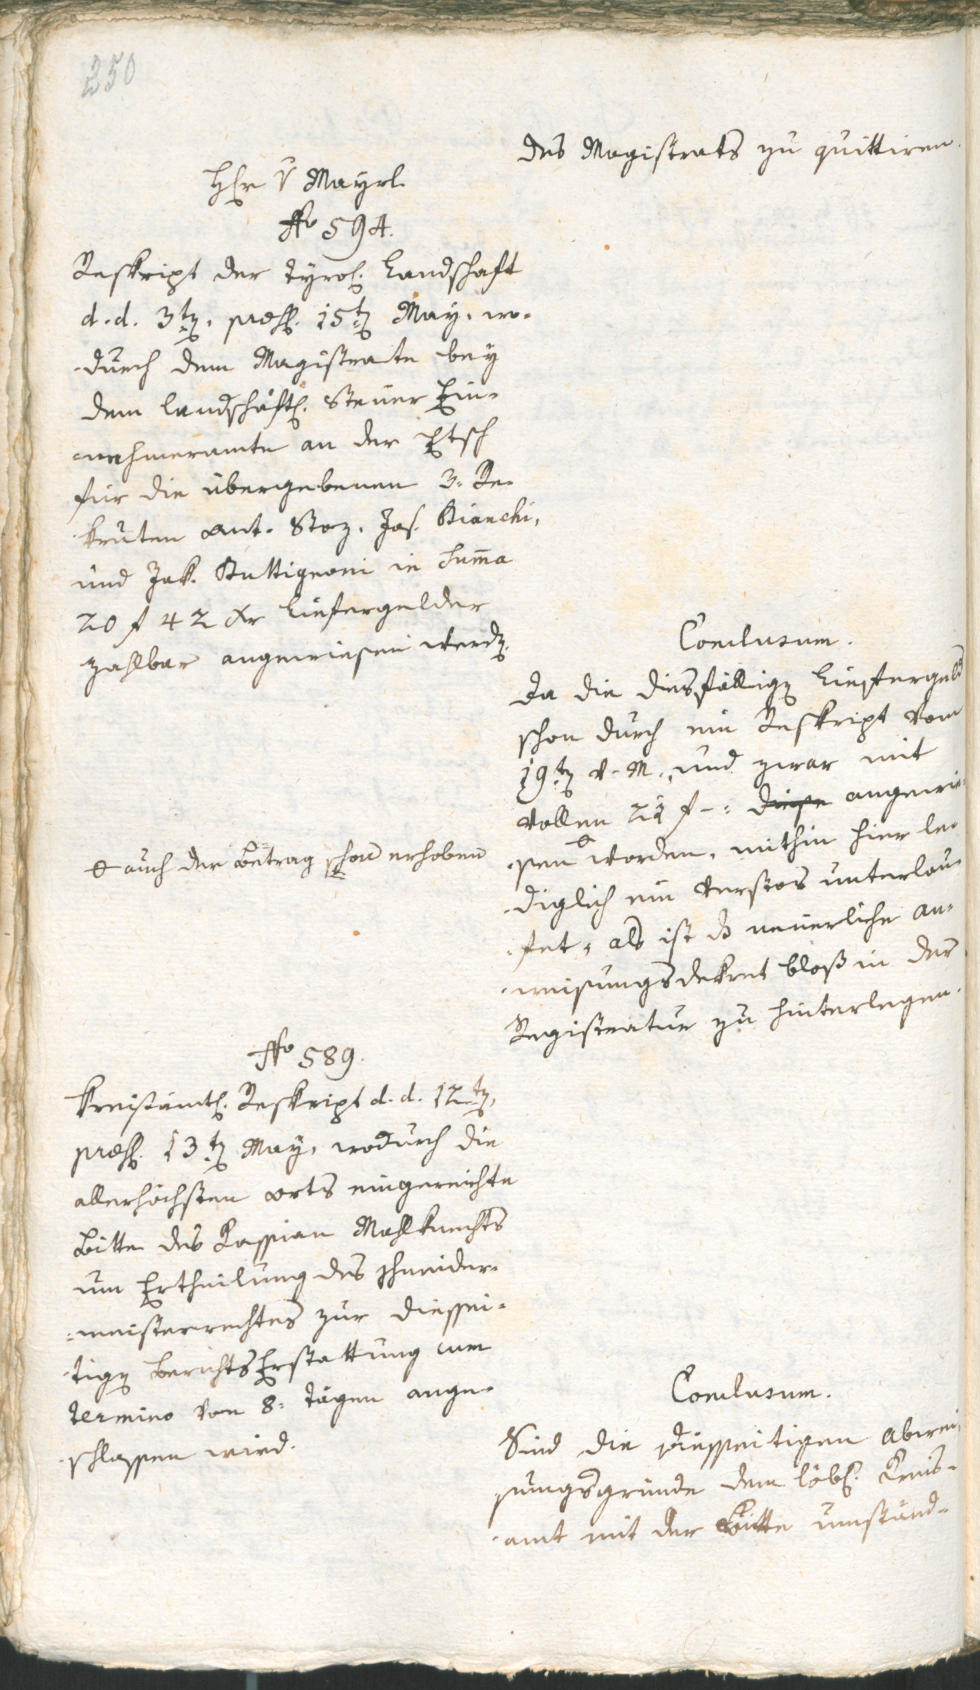 350
des Magistrats zu quittiren.
H̄er v Mayrl.
No 594.
Reskript der Tyrol. Landschaft
d. d. 3t., præs. 15t. May, wo-
durch dem Magistrate bey
dem landschäftl. Steuer Ein-
nehmeramte an der Etsch
für die übergebenen 3. Re-
kruten Ant. Storz, Jos. Bianchi,
und Jak. Buttignoni in Suma
20 f 42 xr Liefergelder
zahlbar angewiesen werdn.
Conclusum.
Da die diesfällign Liefergeld
schon durch ein Reskript vom
19tn v. M. und zwar mit
vollen 21 f -: diese angewie-
sen worden, mithin hier le-
diglich ein Verstos unterlau-
fet, als ist das neuerliche An-
weisungsdekret bloß in der
Registratur zu hinterlegen.
auch der Betrag schon erhoben
No 589.
Kreisämtl. Reskript d. d. 12tn,
præs. 13tn May, wodurch die
allerhöchsten Orts eingereichte
Bitte des Kassian Mahlknechts
um Ertheilung des Schneider-
meisterrechtes zur diessei-
tign Berichts Erstattung cum
termino von 8. Tägen ange-
schlossen wird.
Conclusum.
Sind die diesseitigen Abwei-
sungsgründe dem löbl. Kreis-
amt mit der Bitte umständ-